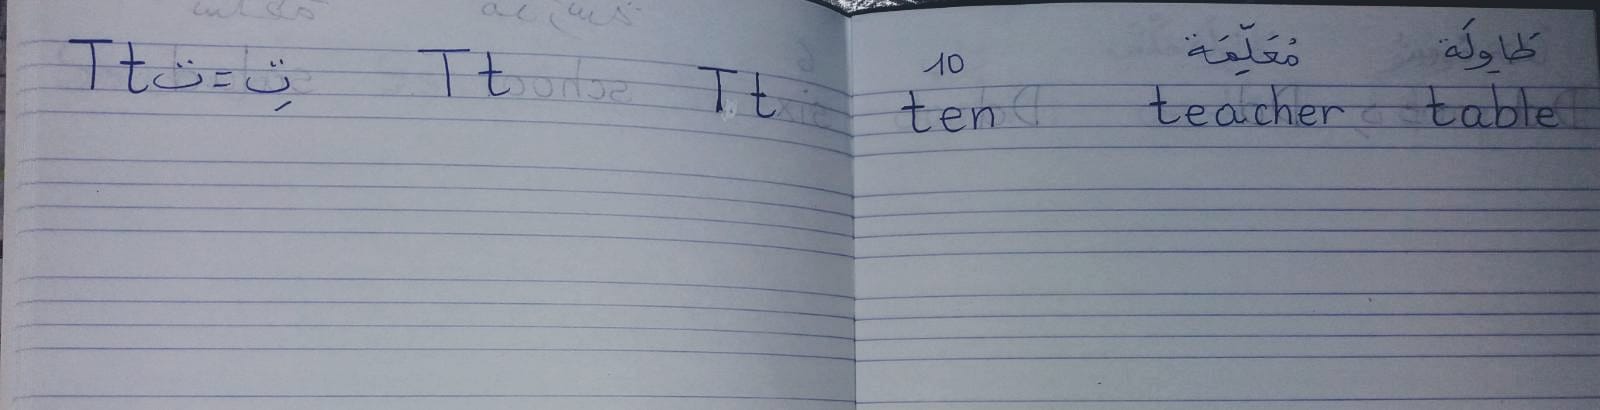 Tt ت = تِ Tt Tt
10 مُعَلِّمَة طَاوِلَة
ten teacher table